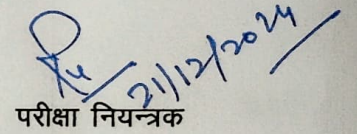 21/12/2024
परीक्षा नियन्त्रक